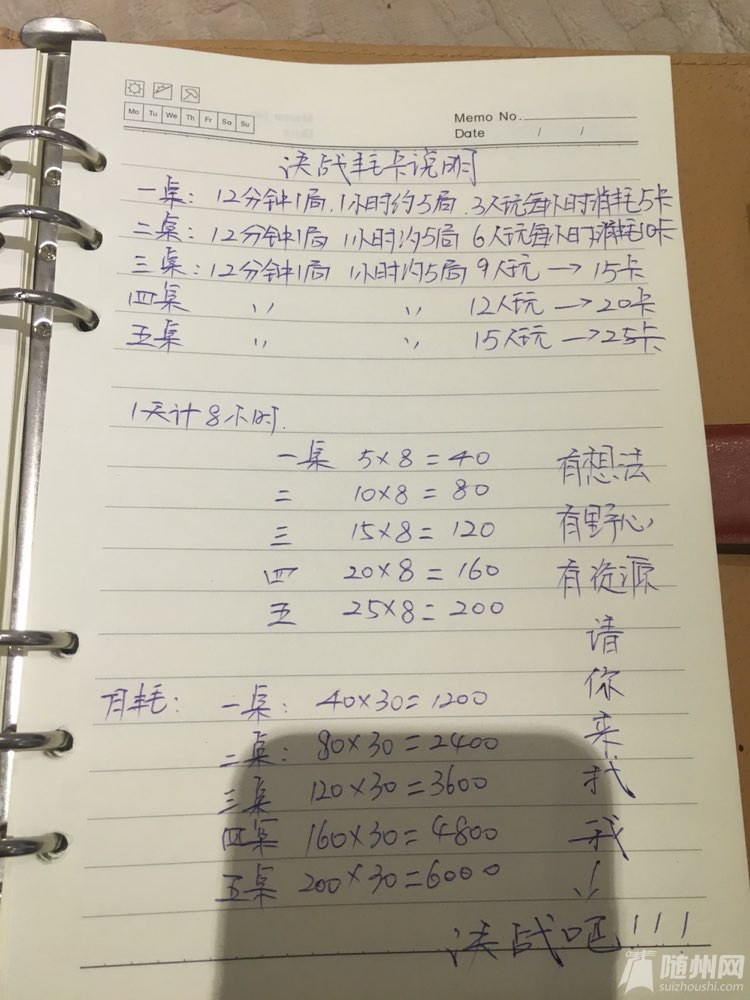 Mo Tu We Th Fr Sa Su
Memo No.
Date / /
决战耗卡说明
一桌: 12分钟1局.1小时约5局.3人玩每小时消耗5卡
二桌: 12分钟1局 1小时约5局 6人玩每小时消耗10卡
三桌: 12分钟1局 1小时约5局 9人玩→15卡
四桌 〃 〃 12人玩→20卡
五桌 〃 〃 15人玩→25卡
1天计8小时.
一桌 5×8=40
二 10×8=80
三 15×8=120
四 20×8=160
五 25×8=200
有想法
有野心
有资源
请
你
来
找
我
!
月耗: 一桌: 40×30=1200
二桌: 80×30=2400
三桌 120×30=3600
四桌 160×30=4800
五桌 200×30=6000
决战吧!!!
随州网
suizhoushi.com